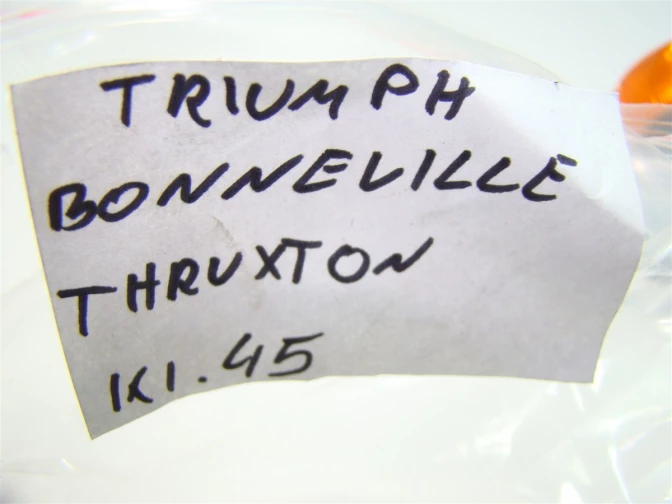 TRIUMPH
BONNEVILLE
THRUXTON
K1.45